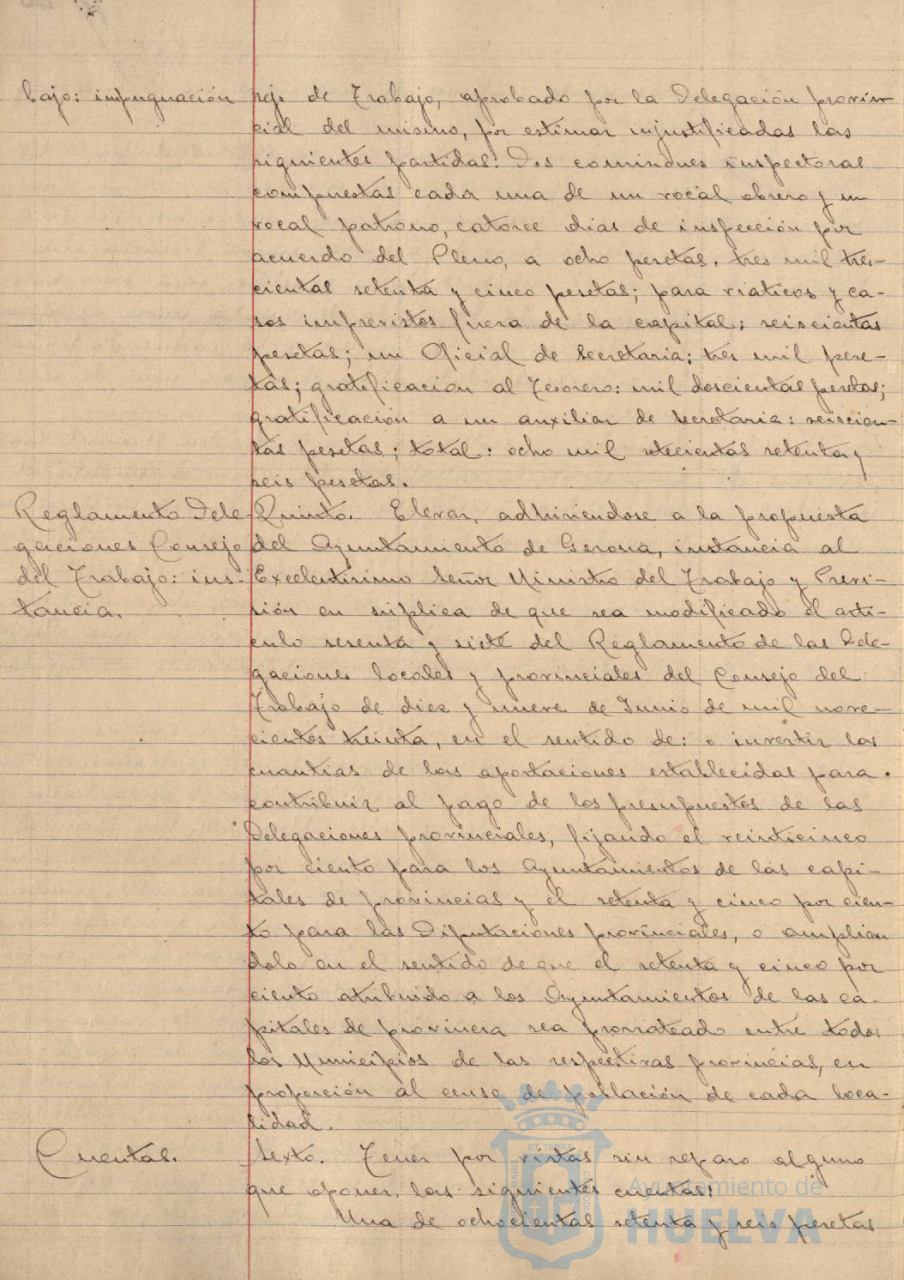 bajo: impugnación
sejo de Trabajo, aprobado por la Delegación provin-
cial del mismo, por estimar injustificadas las
siguientes partidas: Dos comisiones inspectoras
compuestas cada una de un vocal obrero y un
vocal patrono, catorce dias de inspección por
acuerdo del Pleno, a ocho pesetas, tres mil tres-
cientas setenta y cinco pesetas; para viaticos y ca-
sos imprevistos fuera de la capital; seiscientas
pesetas; un Oficial de Secretaria; tres mil pese-
tas; gratificación al Tesorero: mil doscientas pesetas;
gratificación a un auxiliar de Secretaria: seiscien-
tas pesetas; total: ocho mil setecientas setenta y
seis pesetas.
Reglamento Dele-
gaciones Consejo
del Trabajo: ins-
tancia.
Quinto. Elevar, adhiriendose a la propuesta
del Ayuntamiento de Gerona, instancia al
Excelentisimo Señor Ministro del Trabajo y Previ-
sión en suplica de que sea modificado el arti-
culo sesenta y siete del Reglamento de las Dele-
gaciones locales y provinciales del Consejo del
Trabajo de diez y nueve de Junio de mil nove-
cientos treinta, en el sentido de: o invertir las
cuantias de las aportaciones establecidas para
contribuir al pago de los presupuestos de las
Delegaciones provinciales, fijando el veinticinco
por ciento para los Ayuntamientos de las capi-
tales de provincias y el setenta y cinco por cien-
to para las Diputaciones provinciales, o amplian
dolo en el sentido de que el setenta y cinco por
ciento atribuido a los Ayuntamientos de las ca-
pitales de provincia sea prorrateado entre todos
los Municipios de las respectivas provincias, en
proporción al censo de población de cada loca-
lidad.
Cuentas.
Sexto. Tener por vistas sin reparo alguno
que oponer, las siguientes cuentas:
Una de ochocientas setenta y seis pesetas
Ayuntamiento de
HUELVA